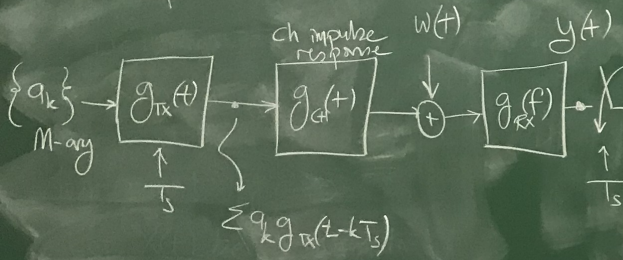 ch impulse
response
w(t)
y(t)
{a_k}
M-ary
g_Tx(t)
g_CH(t)
+
g_Rx(f)
T_s
T_s
Σ a_k g_Tx(t-kT_s)